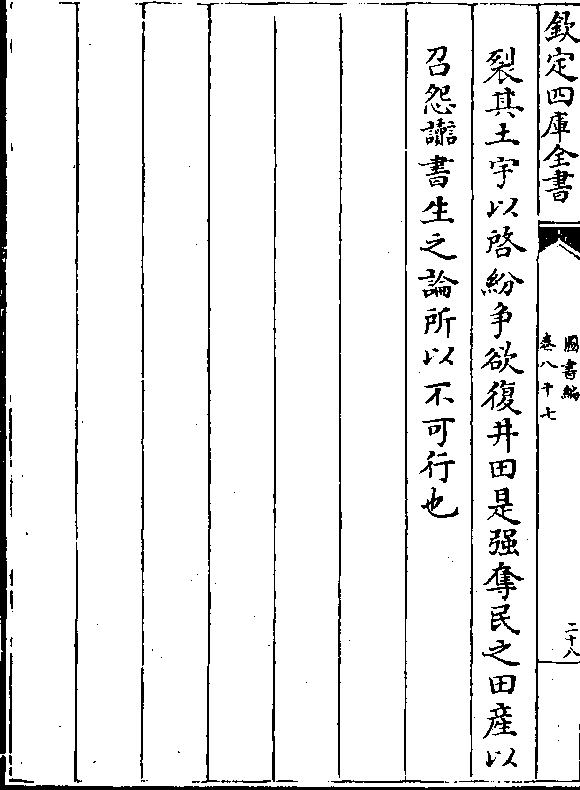 欽定四庫全書
圖書編
卷八十七
二十八
裂其土宇以啓紛争欲復井田是强奪民之田産以
召怨讟書生之論所以不可行也